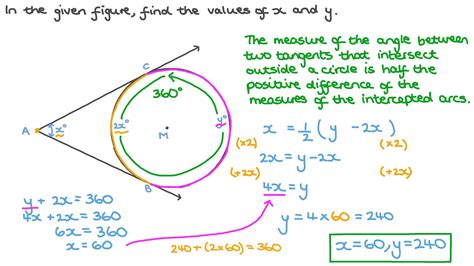 In the given figure, find the values of x and y.
The measure of the angle between
two tangents that intersect
outside a circle is half the
positive difference of the
measures of the intercepted arcs.
C
360°
A
x°
2x°
M
y°
B
x = 1/2 (y - 2x)
(×2) (×2)
2x = y - 2x
(+2x) (+2x)
4x = y
y = 4 × 60 = 240
y + 2x = 360
4x + 2x = 360
6x = 360
x = 60
240 + (2×60) = 360
x = 60, y = 240